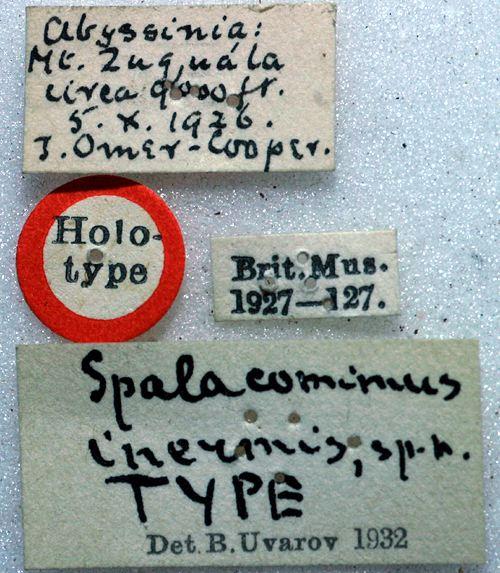 Abyssinia:
Mt. Zuquála
circa 9000 ft.
5. X. 1926.
J. Omer-Cooper.
Holo-
type
Brit. Mus.
1927—127.
Spalacomimus
inermis, sp.n.
TYPE
Det. B. Uvarov 1932